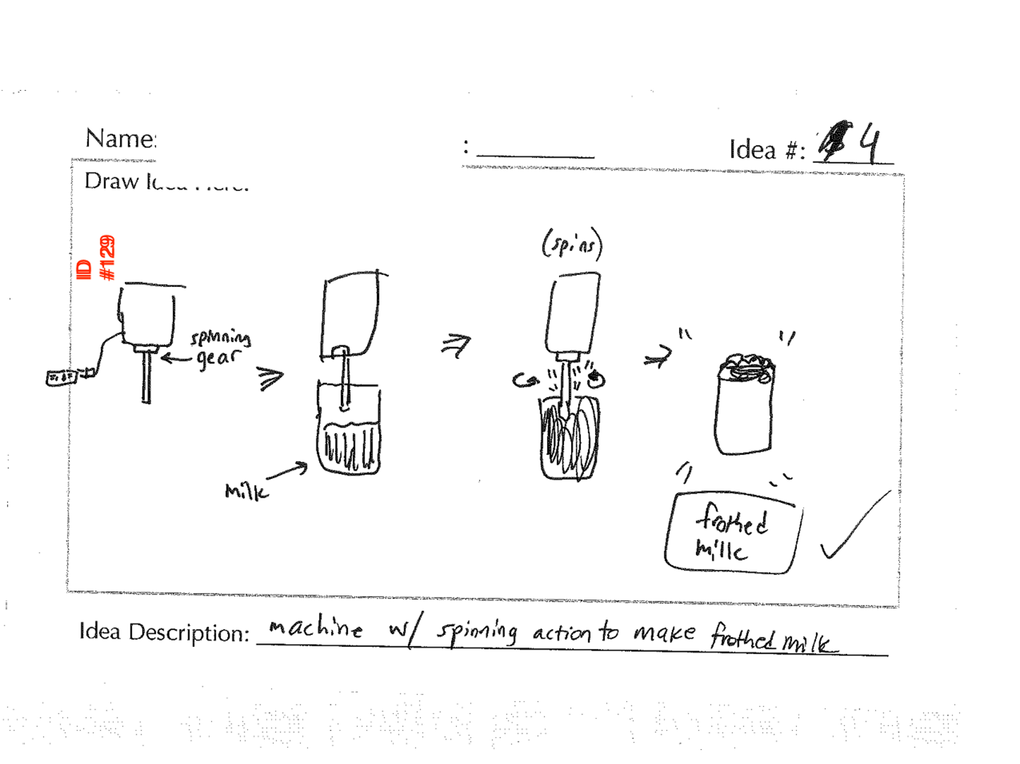 Name:
:
Idea #: 4
Draw Idea Here:
IID
#129
(spins)
spinning
gear
milk
frothed
milk
Idea Description: machine w/ spinning action to make frothed milk